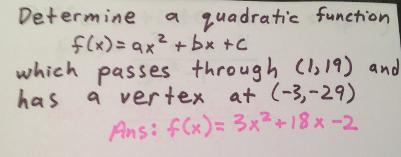 Determine a quadratic function
f(x) = ax² + bx + c
which passes through (1,19) and
has a vertex at (-3,-29)
Ans: f(x) = 3x² + 18x - 2